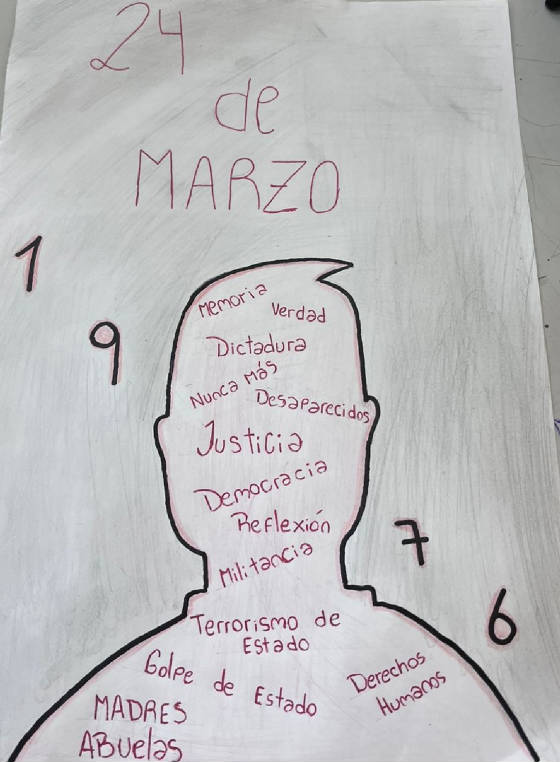 24
de
MARZO
1
9
7
6
Memoria
Verdad
Dictadura
Nunca Más
Desaparecidos
Justicia
Democracia
Reflexión
Militancia
Terrorismo de
Estado
Golpe de Estado
Derechos
Humanos
MADRES
ABuelas